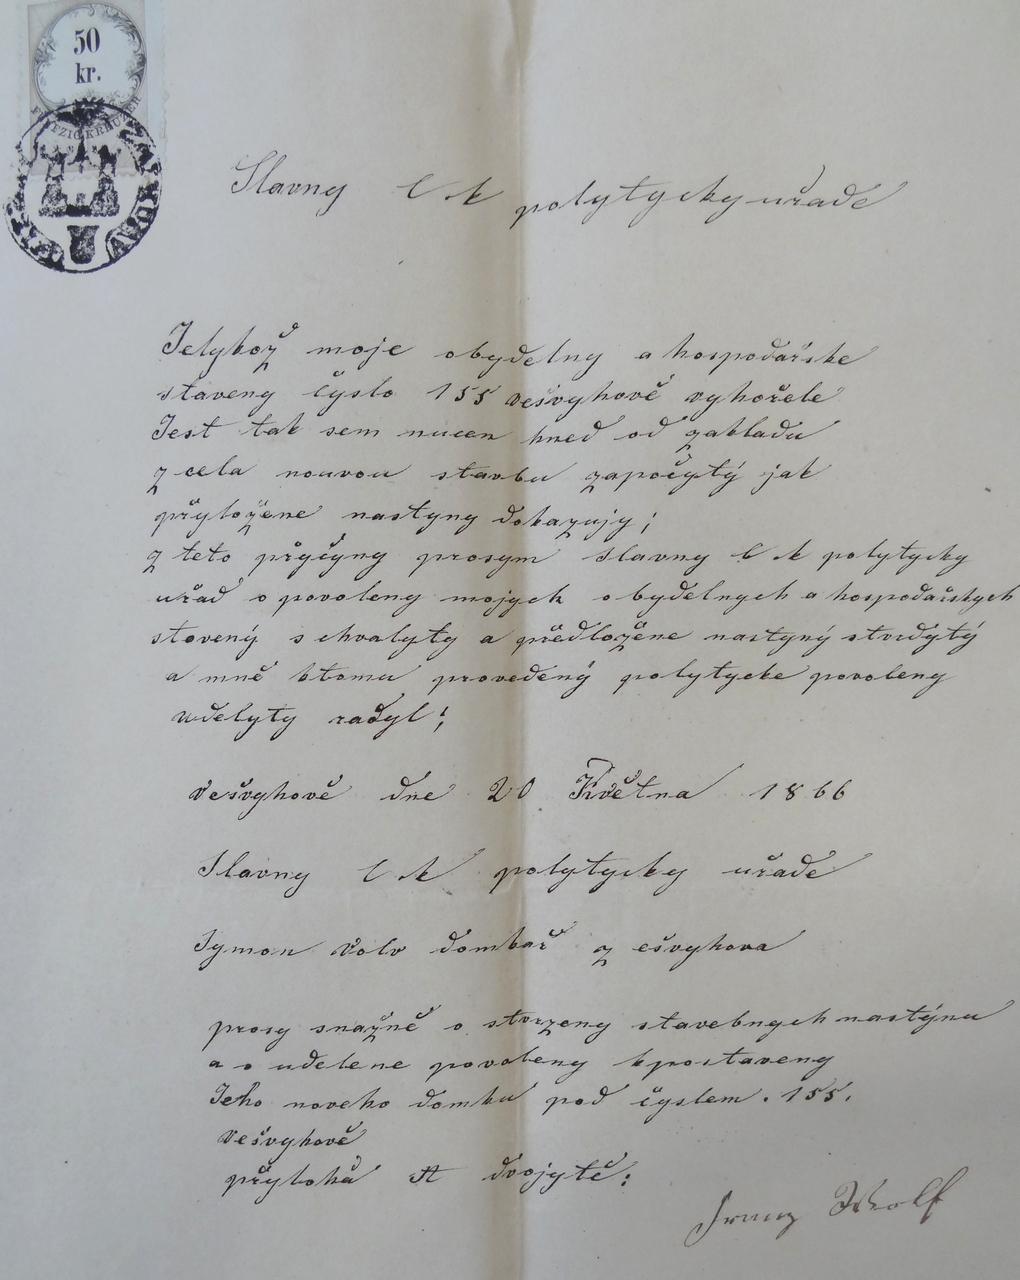 50
kr.
FÜNFZIG KREUZER
Slavny C k polytycky uřade
Jelykož moje obydelny a hospodařske
staveny čyslo 155 vešvyhově vyhořele
Jest tak sem nucen hned od zakladu
z cela nouvou stavbu započytý jak
přyložene nastyny dokazujy;
z teto přyčyny prosym slavny C k polytycky
uřad o povoleny mojych obydelnych a hospodařskych
stavený schvalyty a předložene nastyný stvrdytý
a mně ktomu provedený polytycke povoleny
udelyty radyl!
Vešvyhově dne 20 Května 1866
Slavny C k polytycky uřade
Symon Volv domkař z ešvyhova
prosy snažně o stvrzeny stavebnych nastýnu
a o udelene povoleny kpostaveny
Jeho noveho domku pod čyslem . 155 .
vešvyhově
přyloha A dvojytě:
Franz Wolf